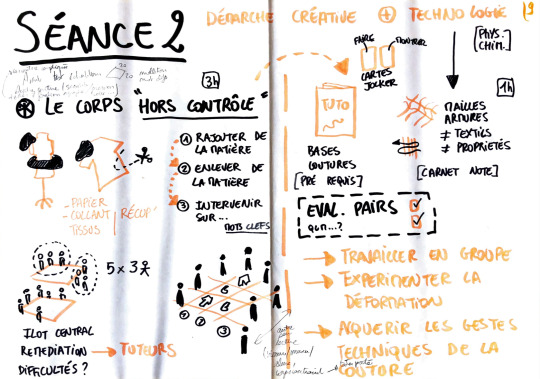 SÉANCE 2
DÉMARCHE CRÉATIVE + TECHNOLOGIE
19
[PHYS.
CHIM.]
3h
* LE CORPS "HORS CONTRÔLE"
① RAJOUTER DE
LA MATIÈRE
② ENLEVER DE
LA MATIÈRE
③ INTERVENIR
SUR...
MOTS CLEFS
- PAPIER
- COLLANT
- TISSUS
RÉCUP°
5 x 3
① ② ③
ILOT CENTRAL
REMEDIATION
DIFFICULTÉS ?
→ TUTEURS
FAIRE
MONTRER
CARTES
JOCKER
TUTO
BASES
COUTURES
[PRÉ REQUIS]
1h
MAILLES
ARMURES
≠ TEXTILES
≠ PROPRIÉTÉS
[CARNET NOTE]
EVAL. PAIRS
QUN...?
→ TRAVAILLER EN GROUPE
→ EXPERIMENTER LA
DÉFORMATION
→ AQUERIR LES GESTES
TECHNIQUES DE LA
COUTURE